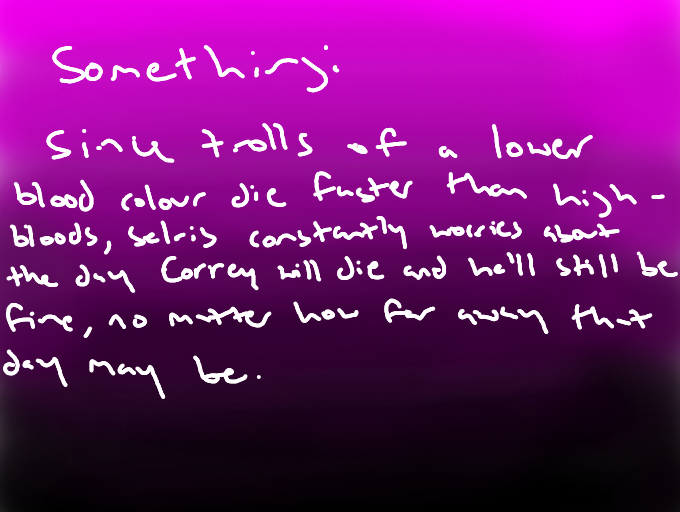 Something:
Since trolls of a lower
blood colour die faster than high-
bloods, Selris constantly worries about
the day Correy will die and he'll still be
fine, no matter how far away that
day may be.